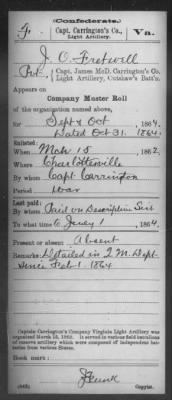 (Confederate.)
F. Capt. Carrington's Co., Va.
Light Artillery.
J. O. Fretwell
Pvt., Capt. James McD. Carrington's Co.
Light Artillery, Cutshaw's Batt'n.
Appears on
Company Muster Roll
of the organization named above,
for Sept & Oct 1864.
Dated Oct 31. 1864.
Enlisted:
When Mch 15 1862.
Where Charlottesville
By whom Capt Carrington
Period war
Last paid:
By whom Paid on Descriptive List
To what time July 1 1864.
Present or absent: Absent
Remarks: Detailed in Q. M. Dept
since Feb 1. 1864
Captain Carrington's Company Virginia Light Artillery was
organized March 15, 1862. It served in various field battalions
of reserve artillery which were composed of independent bat-
teries from various States.
Book mark:
(642)
Copyist.